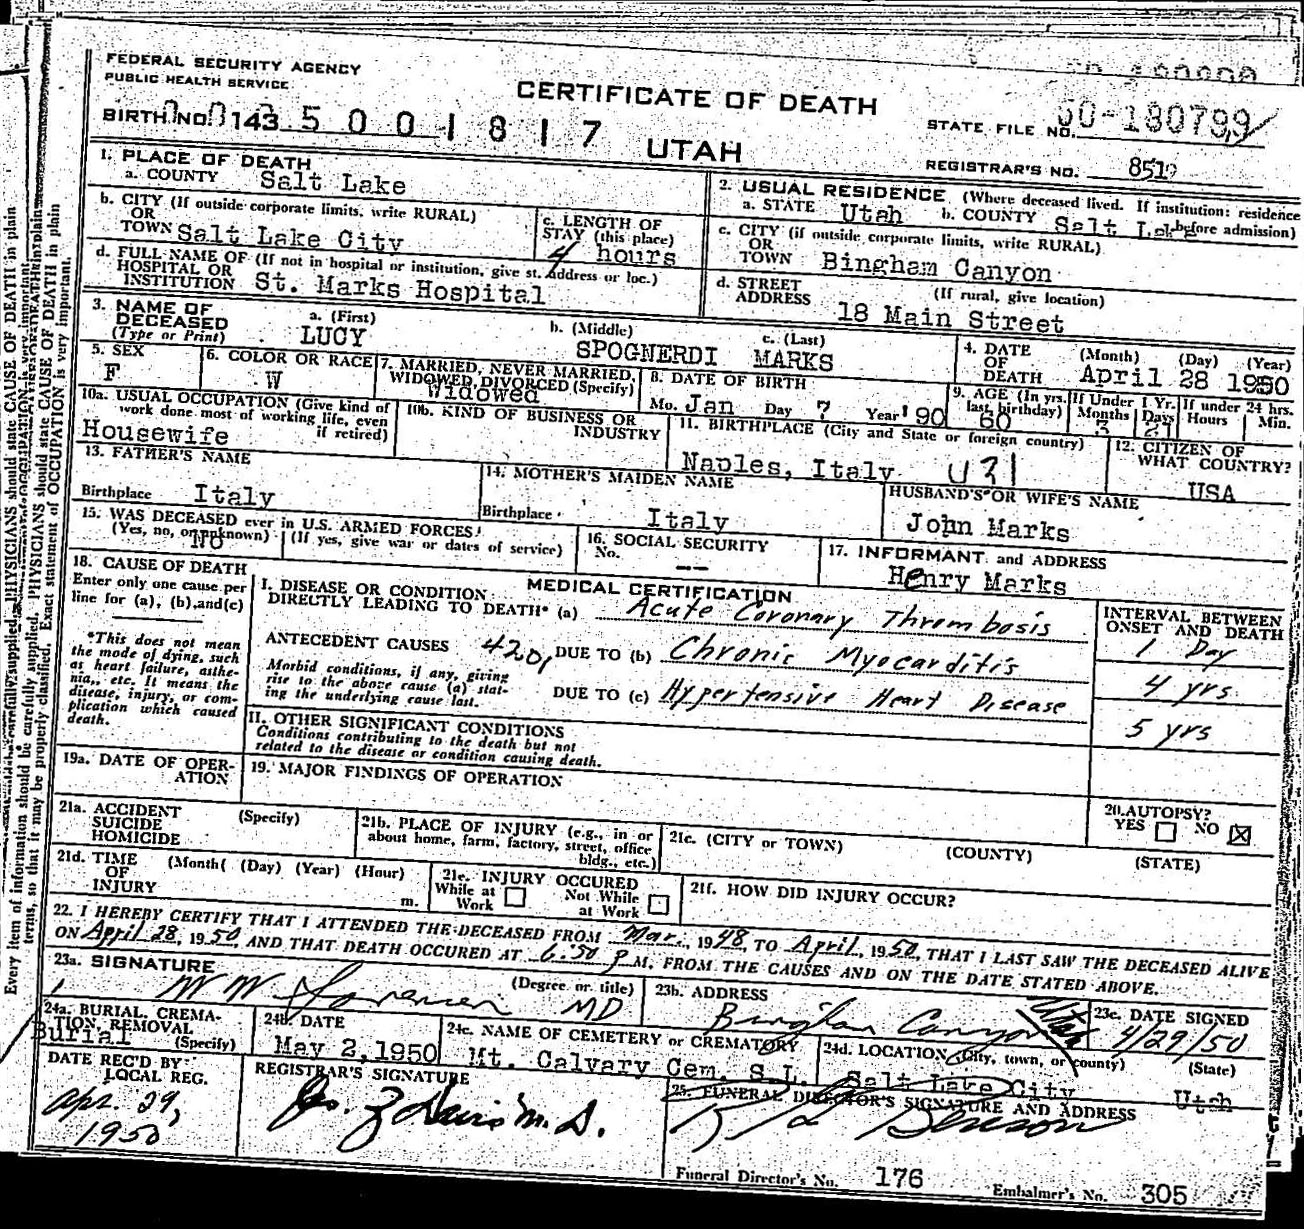 FEDERAL SECURITY AGENCY
PUBLIC HEALTH SERVICE
CERTIFICATE OF DEATH
UTAH
BIRTH NO. 143 5 0 0 1 8 1 7
STATE FILE NO. 50-180799
REGISTRAR'S NO. 851
1. PLACE OF DEATH
a. COUNTY Salt Lake
b. CITY (If outside corporate limits, write RURAL)
OR
TOWN Salt Lake City
c. LENGTH OF
STAY (this place)
4 hours
d. FULL NAME OF (If not in hospital or institution, give st. address or loc.)
HOSPITAL OR
INSTITUTION St. Marks Hospital
2. USUAL RESIDENCE (Where deceased lived. If institution: residence
a. STATE Utah b. COUNTY Salt Lake before admission)
c. CITY (if outside corporate limits, write RURAL)
OR
TOWN Bingham Canyon
d. STREET (If rural, give location)
ADDRESS 18 Main Street
3. NAME OF
DECEASED
(Type or Print)
a. (First) b. (Middle) c. (Last)
LUCY SPOGNERDI MARKS
4. DATE (Month) (Day) (Year)
OF
DEATH April 28 1950
5. SEX
F
6. COLOR OR RACE
W
7. MARRIED, NEVER MARRIED,
WIDOWED, DIVORCED (Specify)
Widowed
8. DATE OF BIRTH
Mo. Jan Day 7 Year '90
9. AGE (In yrs. last birthday) 60
If Under 1 Yr. Months 3 Days 21
If under 24 hrs. Hours Min.
10a. USUAL OCCUPATION (Give kind of
work done most of working life, even
if retired)
Housewife
10b. KIND OF BUSINESS OR
INDUSTRY
11. BIRTHPLACE (City and State or foreign country)
Naples, Italy
12. CITIZEN OF
WHAT COUNTRY?
USA
13. FATHER'S NAME
Birthplace Italy
14. MOTHER'S MAIDEN NAME
Birthplace Italy
HUSBAND'S OR WIFE'S NAME
John Marks
15. WAS DECEASED ever in U.S. ARMED FORCES?
(Yes, no, or unknown) (If yes, give war or dates of service)
NO
16. SOCIAL SECURITY
No. --
17. INFORMANT and ADDRESS
Henry Marks
18. CAUSE OF DEATH
Enter only one cause per
line for (a), (b), and (c)
*This does not mean
the mode of dying, such
as heart failure, asthe-
nia, etc. It means the
disease, injury, or com-
plication which caused
death.
MEDICAL CERTIFICATION
I. DISEASE OR CONDITION
DIRECTLY LEADING TO DEATH* (a) Acute Coronary Thrombosis
ANTECEDENT CAUSES 420, DUE TO (b) Chronic Myocarditis
Morbid conditions, if any, giving
rise to the above cause (a) stat-
ing the underlying cause last.
DUE TO (c) Hypertensive Heart Disease
INTERVAL BETWEEN
ONSET AND DEATH
1 Day
4 yrs
5 yrs
II. OTHER SIGNIFICANT CONDITIONS
Conditions contributing to the death but not
related to the disease or condition causing death.
19a. DATE OF OPER-
ATION
19. MAJOR FINDINGS OF OPERATION
20. AUTOPSY?
YES NO
21a. ACCIDENT (Specify)
SUICIDE
HOMICIDE
21b. PLACE OF INJURY (e.g., in or
about home, farm, factory, street, office
bldg., etc.)
21c. (CITY or TOWN) (COUNTY) (STATE)
21d. TIME (Month) (Day) (Year) (Hour)
OF
INJURY m.
21e. INJURY OCCURED
While at Work
Not While at Work
21f. HOW DID INJURY OCCUR?
22. I HEREBY CERTIFY THAT I ATTENDED THE DECEASED FROM Mar., 1948, TO April, 1950, THAT I LAST SAW THE DECEASED ALIVE
ON April 28, 1950, AND THAT DEATH OCCURED AT 6:50 P M. FROM THE CAUSES AND ON THE DATE STATED ABOVE.
23a. SIGNATURE (Degree or title)
MD
23b. ADDRESS
Bingham Canyon Utah
23c. DATE SIGNED
4/29/50
24a. BURIAL, CREMA-
TION, REMOVAL
(Specify)
Burial
24b. DATE
May 2, 1950
24c. NAME OF CEMETERY or CREMATORY
Mt. Calvary Cem. S.L.
24d. LOCATION (City, town, or county) (State)
Salt Lake City Utah
DATE REC'D BY
LOCAL REG.
Apr. 29,
1950
REGISTRAR'S SIGNATURE
M.D.
25. FUNERAL DIRECTOR'S SIGNATURE AND ADDRESS
Benson
Funeral Director's No. 176 Embalmer's No. 305
Every item of information should be carefully supplied. PHYSICIANS should state CAUSE OF DEATH in plain
terms, so that it may be properly classified. Exact statement of OCCUPATION is very important.